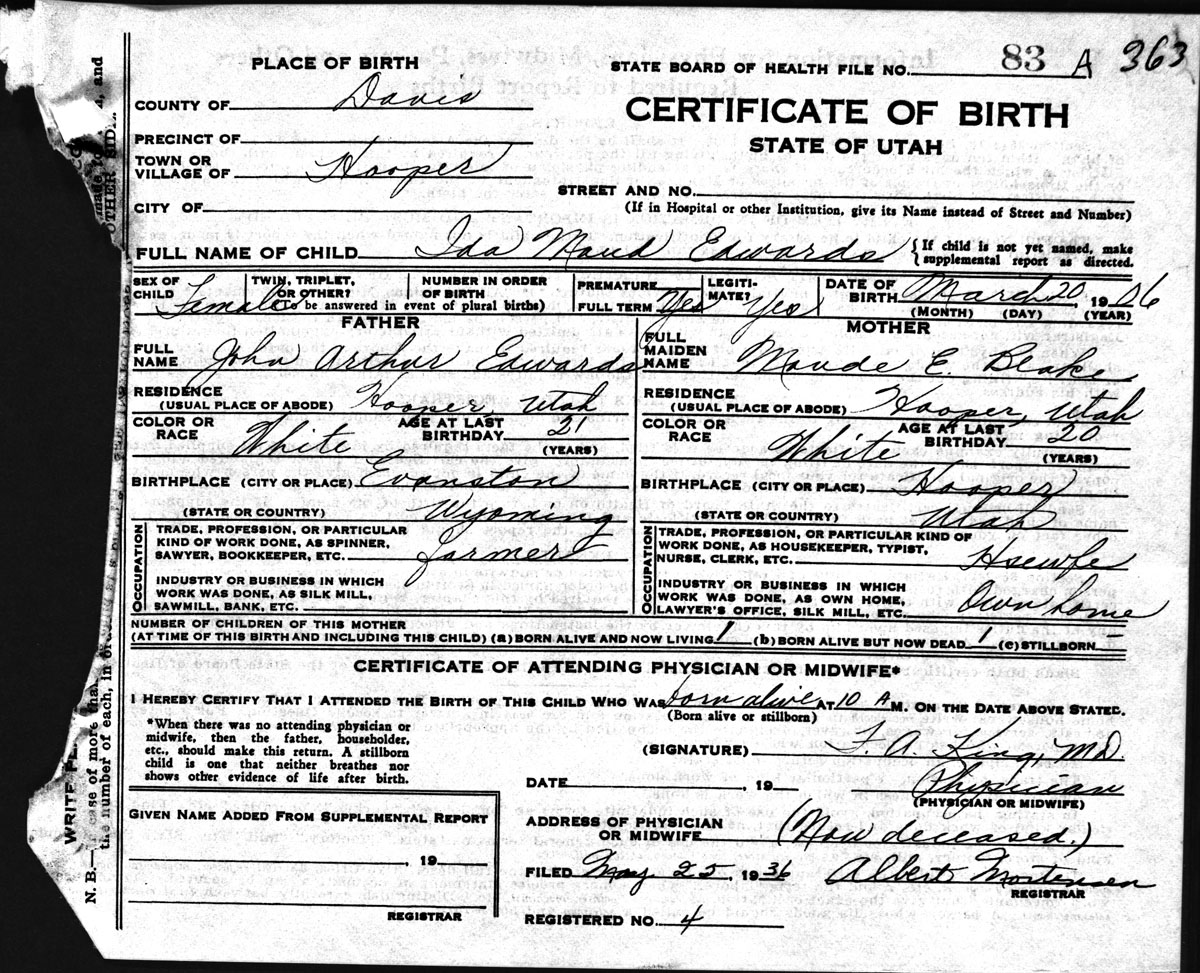 83 A 363
PLACE OF BIRTH
STATE BOARD OF HEALTH FILE NO.
COUNTY OF Davis
CERTIFICATE OF BIRTH
PRECINCT OF
STATE OF UTAH
TOWN OR
VILLAGE OF Hooper
STREET AND NO.
CITY OF
(If in Hospital or other Institution, give its Name instead of Street and Number)
FULL NAME OF CHILD Ida Maud Edwards { If child is not yet named, make
supplemental report as directed.
SEX OF
CHILD Female
TWIN, TRIPLET,
OR OTHER?
NUMBER IN ORDER
OF BIRTH
(To be answered in event of plural births)
PREMATURE
FULL TERM Yes
LEGITI-
MATE? Yes
DATE OF
BIRTH March 20 1906
(MONTH) (DAY) (YEAR)
FATHER
FULL
NAME John Arthur Edwards
RESIDENCE
(USUAL PLACE OF ABODE) Hooper, Utah
COLOR OR
RACE White
AGE AT LAST
BIRTHDAY 21
(YEARS)
BIRTHPLACE (CITY OR PLACE) Evanston
(STATE OR COUNTRY) Wyoming
OCCUPATION
TRADE, PROFESSION, OR PARTICULAR
KIND OF WORK DONE, AS SPINNER,
SAWYER, BOOKKEEPER, ETC. farmer
INDUSTRY OR BUSINESS IN WHICH
WORK WAS DONE, AS SILK MILL,
SAWMILL, BANK, ETC.
MOTHER
FULL
MAIDEN
NAME Maude E. Blake
RESIDENCE
(USUAL PLACE OF ABODE) Hooper, Utah
COLOR OR
RACE White
AGE AT LAST
BIRTHDAY 20
(YEARS)
BIRTHPLACE (CITY OR PLACE) Hooper
(STATE OR COUNTRY) Utah
OCCUPATION
TRADE, PROFESSION, OR PARTICULAR KIND OF
WORK DONE, AS HOUSEKEEPER, TYPIST,
NURSE, CLERK, ETC. Hsewfe
INDUSTRY OR BUSINESS IN WHICH
WORK WAS DONE, AS OWN HOME,
LAWYER'S OFFICE, SILK MILL, ETC. Own home
NUMBER OF CHILDREN OF THIS MOTHER
(AT TIME OF THIS BIRTH AND INCLUDING THIS CHILD) (a) BORN ALIVE AND NOW LIVING 1 (b) BORN ALIVE BUT NOW DEAD 1 (c) STILLBORN –
CERTIFICATE OF ATTENDING PHYSICIAN OR MIDWIFE*
I HEREBY CERTIFY THAT I ATTENDED THE BIRTH OF THIS CHILD WHO WAS born alive AT 10 A M. ON THE DATE ABOVE STATED.
(Born alive or stillborn)
*When there was no attending physician or
midwife, then the father, householder,
etc., should make this return. A stillborn
child is one that neither breathes nor
shows other evidence of life after birth.
(SIGNATURE) T. A. King, MD.
DATE , 19 Physician
(PHYSICIAN OR MIDWIFE)
GIVEN NAME ADDED FROM SUPPLEMENTAL REPORT
, 19
REGISTRAR
ADDRESS OF PHYSICIAN
OR MIDWIFE (Now deceased.)
FILED May 25, 1936 Albert Mortensen
REGISTRAR
REGISTERED NO. 4
WRITE
N. B.— case of more than
the number of each, in
made for
OTHER SIDE